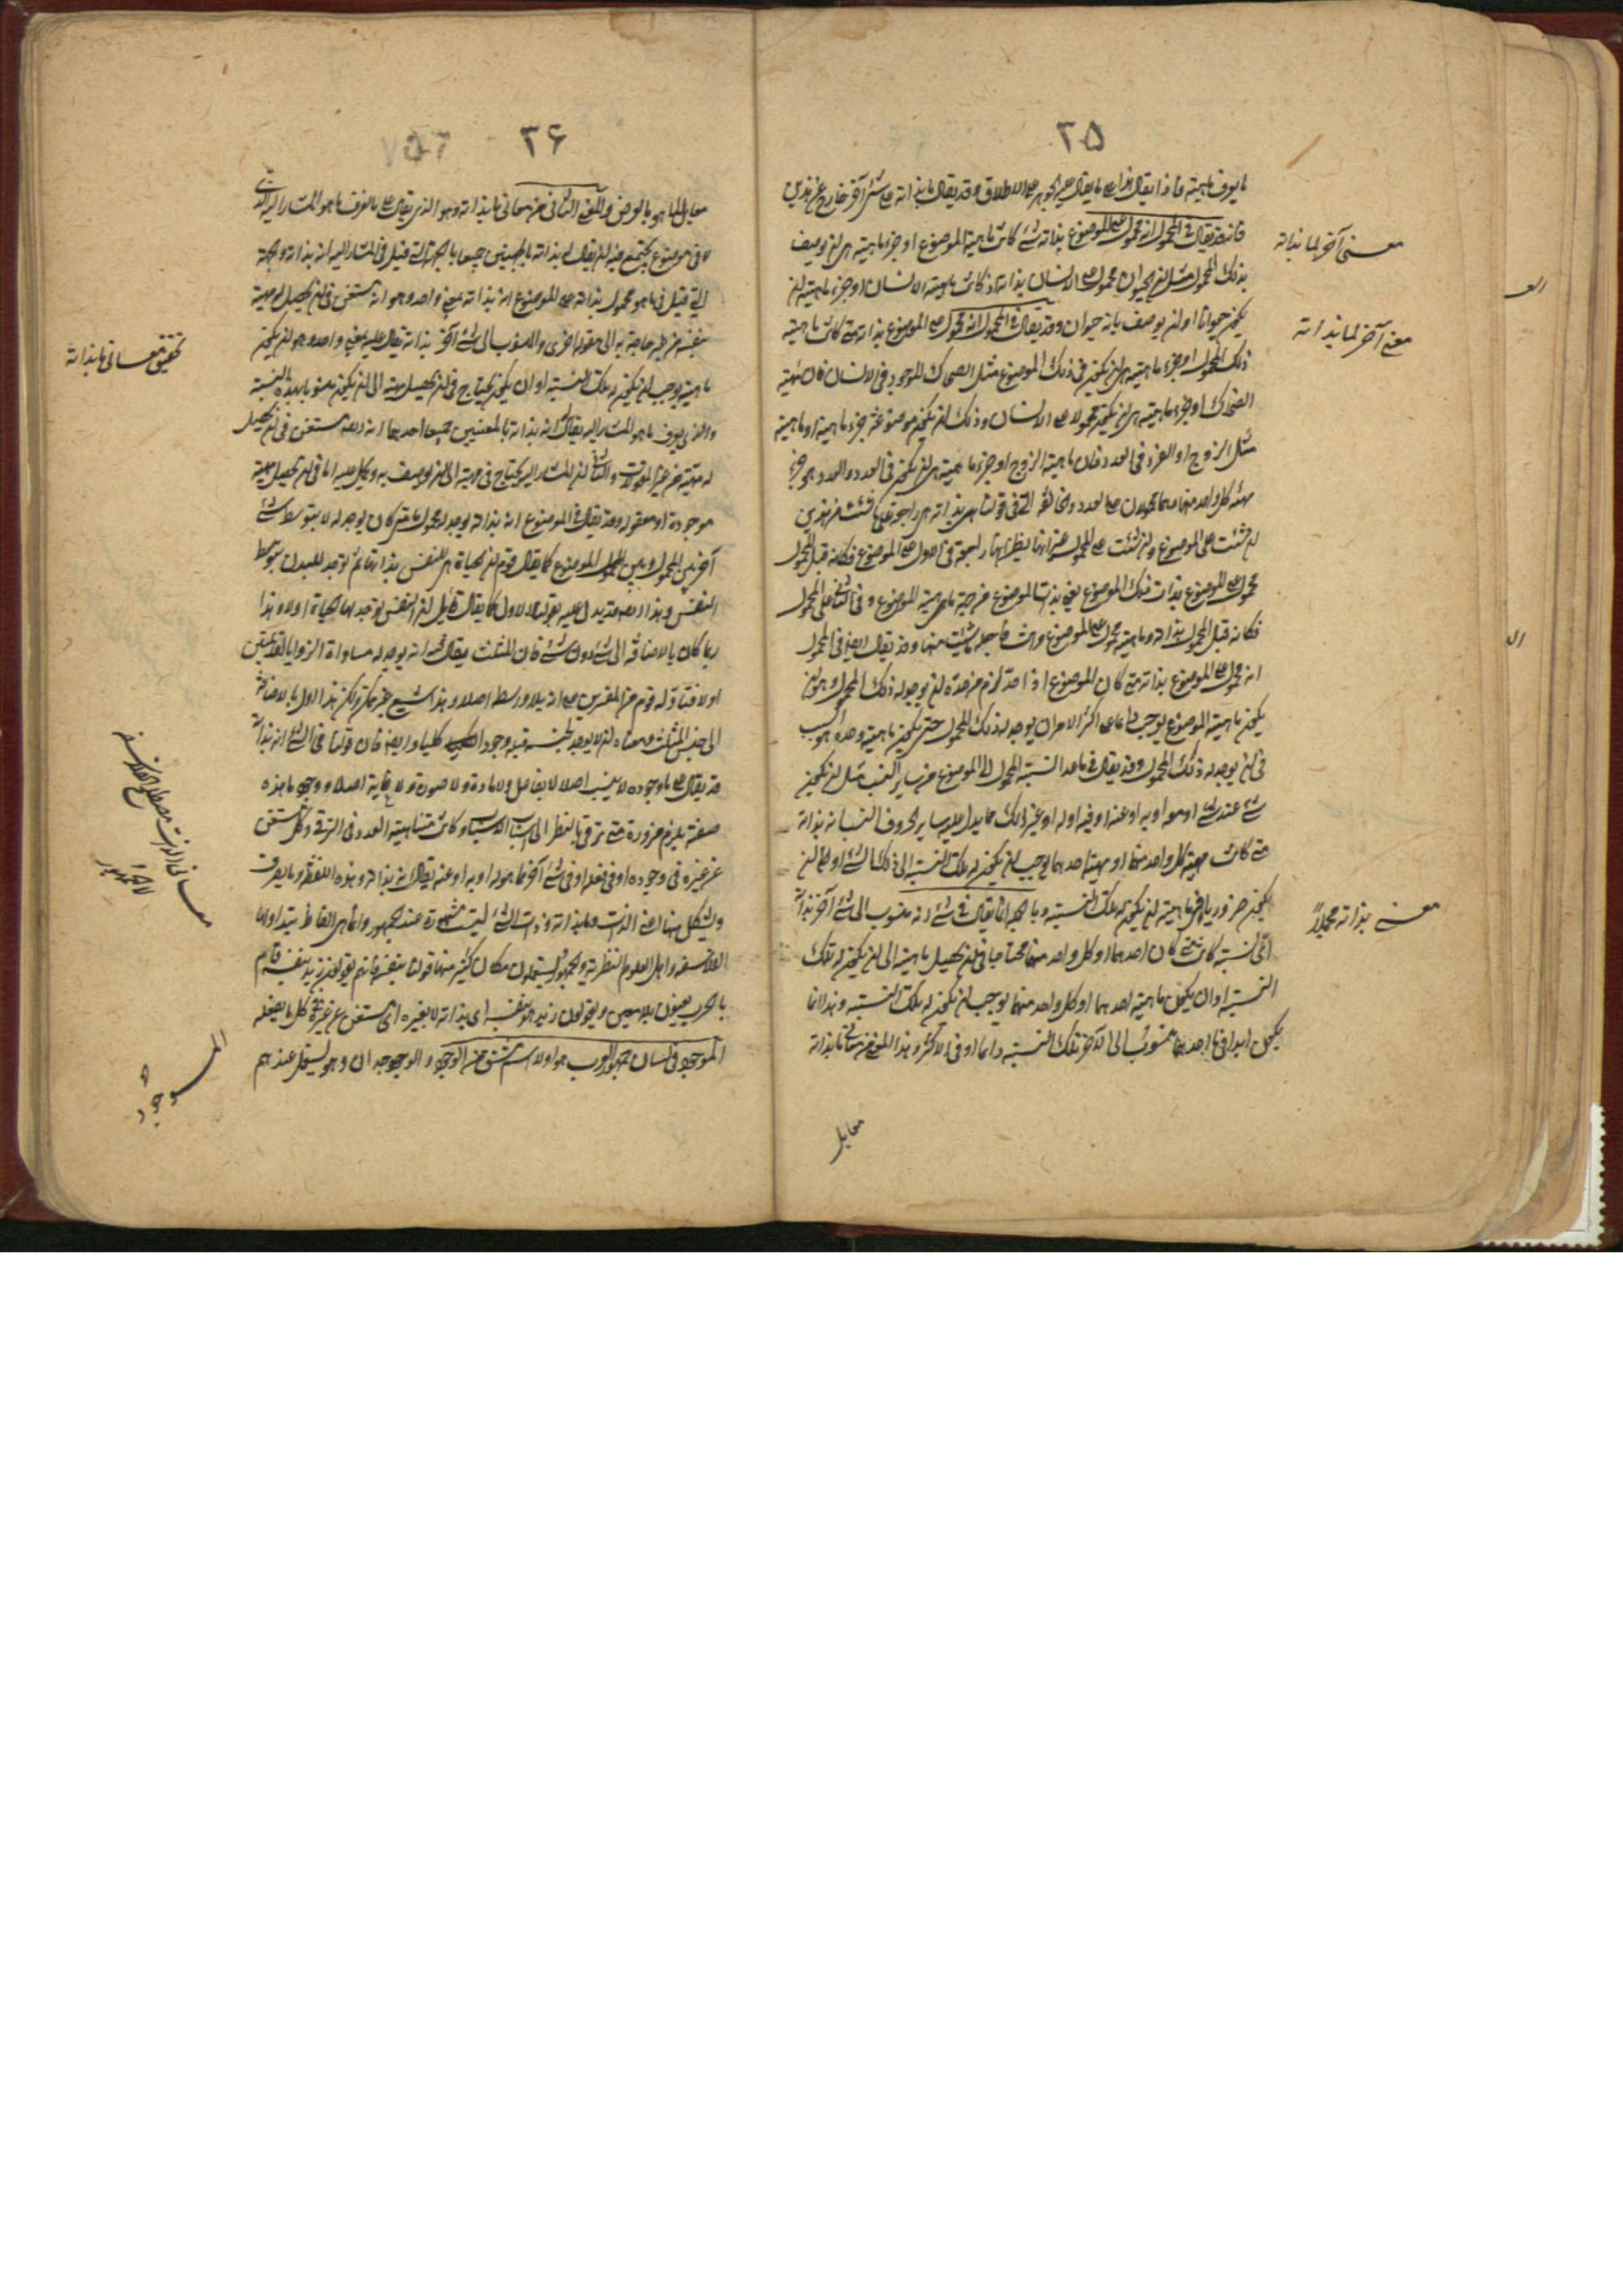 ٢۵
ما يعرف ماهيته فاذا يقال بذاته على ما يقال عليه الجوهر على الاطلاق وقد يقال ما بذاته على شئ آخر خارج عن هذين
فانه قد يقال فى المحمول انه محمول على الموضوع بذاته متى كانت ماهية الموضوع او جزء ماهيته هى ان يوصف
بذلك المحمول مثل ان الحيوان محمول على الانسان بذاته اذ كانت ماهية الانسان او جزء ماهيته ان
يكون حيوانا او ان يوصف بانه حيوان وقد يقال فى المحمول انه محمول على الموضوع بذاته متى كانت ماهية
ذلك المحمول او جزء ماهيته هى ان يكون فى ذلك الموضوع مثل الضحاك الموجود فى الانسان فان ماهية
الضحاك او جزء ماهيته هى ان يكون محمولا على الانسان وذلك ان يكون موضوعه جزء ماهيته او ماهيته
مثل الزوج او الفرد فى العدد فان ماهية الزوج او جزء ماهيته هى ان يكون فى العدد والعدد هو جزء
مهية كل واحد منهما وهما محمولان على العدد
ان شئت على الموضوع وان شئت على المحمول
محمول على الموضوع بذات ذلك الموضوع يعنى بذات الموضوع من جهة ماهية الموضوع وفى الثانى على المحمول
فكانه قيل المحمول بذاته وماهيته محمول على الموضوع وانت فاجعله ما شئت منهما وقد يقال ايضا فى المحمول
انه محمول على الموضوع بذاته متى كان الموضوع اذا حد لزم من حده ان يوجد له ذلك المحمول وهو ان
يكون ماهية الموضوع يوجب دائما على اكثر الامر ان يوجد له ذلك المحمول حتى يكون ماهيته وحده هو السبب
فى ان يوجد له ذلك المحمول وقد يقال فى ما عدا النسبة المحمول الى الموضوع من ساير النسب مثل ان يكون
شئ عند شئ او معه او به او عنه او فيه او له او غير ذلك مما يدل عليه ساير الحروف النسبا نه بذاته
متى كانت مهية كل واحد منهما او مهية احدهما يوجب ان يكون له تلك النسبة الى ذلك الشئ او
يكون ضروريا فى ماهيته ان يكون له تلك النسبة وبالجملة انما يقال فى شئ انه منسوب الى شئ آخر بذاته
اى نسبة كانت متى كان احدهما او كل واحد منهما محتاجا فى ان يحصل ماهيته الى ان يكون له تلك
النسبة او ان يكون ماهية احدهما او كل واحد منهما يوجب ان يكون له تلك النسبة وهذا انما
يكون ابدا فى ما احدهما منسوب الى الآخر تلك النسبة دائما او فى الاكثر وهذا المعنى من معانى ما بذاته
مقابل
معنى آخر لما بذاته
معنى آخر لما بذاته
معنى بذاته مجملاً
٣۶
مقابل لما هو بالعرض والمعنى الثانى من معانى ما بذاته وهو الذى يقال على ما يعرف ما هو المشار اليه الذى
لا فى موضوع يجتمع فيه ان يقال انه بذاته بالجهتين جميعا بالجهة التى قيل فى المشار اليه انه بذاته وبالجهة
التى قيل فى ما هو محمول بذاته على الموضوع انه بذاته بمعنى واحد وهو انه مستغن فى ان يحصل له مهية
بنفسه من غير حاجة به الى مقولة اخرى والمنسوب الى شئ آخر بذاته يقال عليه بمعنى واحد وهو ان يكون
ماهيته يوجب ان يكون له تلك النسبة او ان يكون يحتاج فى ان يحصل مهيته الى ان يكون منسوبا بهذه النسبة
والذى يعرف ما هو المشار اليه يقال انه بذاته بالمعنيين جميعا احدهما انه مستغن فى ان يحصل
له مهيته عن غير المقولات والثانى ان المشار اليه يحتاج فى مهيته الى ان يوصف به ويحمل عليه اما فى ان يحصل مهيته
موجودة او معقولة وقد يقال فى الموضوع انه بذاته يوجد له محمول ما متى كان يوجد له لا بتوسط شئ
آخر بين المحمول وبين الموضوع كما يقال قوم ان الحياة هى للنفس بذاتها ثم توجد للبدن بتوسط
النفس وهذا قد يدل عليه بقولنا الاول كما يقال قائل ان النفس توجد لها الحياة اولا وهذا
ربما كان بالاضافة الى شئ دون شئ فان المثلث يقال فيه انه يوجد له مساواة الزوايا لقائمتين
اولا فتاوله قوم من المفسرين على انه بلا وسط اصلا وهذا شنيع غير ممكن ولكن هذا اول بالاضافة
الى جنس المثلث ومعناه انه لا يوجد لجنسه قبله وجودا كليا وايضا فان قولنا فى الشئ انه بذاته
قد يقال على ما وجوده لا بسبب اصلا لا بفاعل ولا مادة ولا صورة ولا غاية اصلا ووجود ما هذه
صفته يلزم ضرورة متى ترقى بالنظر الى اسباب الاسباب وكانت متناهية العدد فى الترقى وكل مستغن
عن غيره فى وجوده او فى فعله او فى شئ آخر مما هو له او به او عنه يقال انه بذاته وهذه اللفظة وما تصرف
وتشكل منها اعنى الذات وما بذاته وذات الشئ ليست مشهورة عند الجمهور وانما هى الفاظ يتداولها
الفلاسفة واهل العلوم النظرية والجمهور يستعملون مكان كثير منها قولنا بنفسه فانهم يقولون زيد بنفسه قام
بالحرب يعنون بلا معين ويقولون زيد هو بنفسه اى بذاته لا بغيره اى مستغن عن غيره فى كل ما يفعله
الموجود فى لسان جمهور العرب هو اولا اسم مشتق من الوجود والوجدان وهو يستعمل عندهم
تحقيق معانى ما بذاته
معانى الذات مصطلح الفلاسفة
لا الجمهور
الموجود